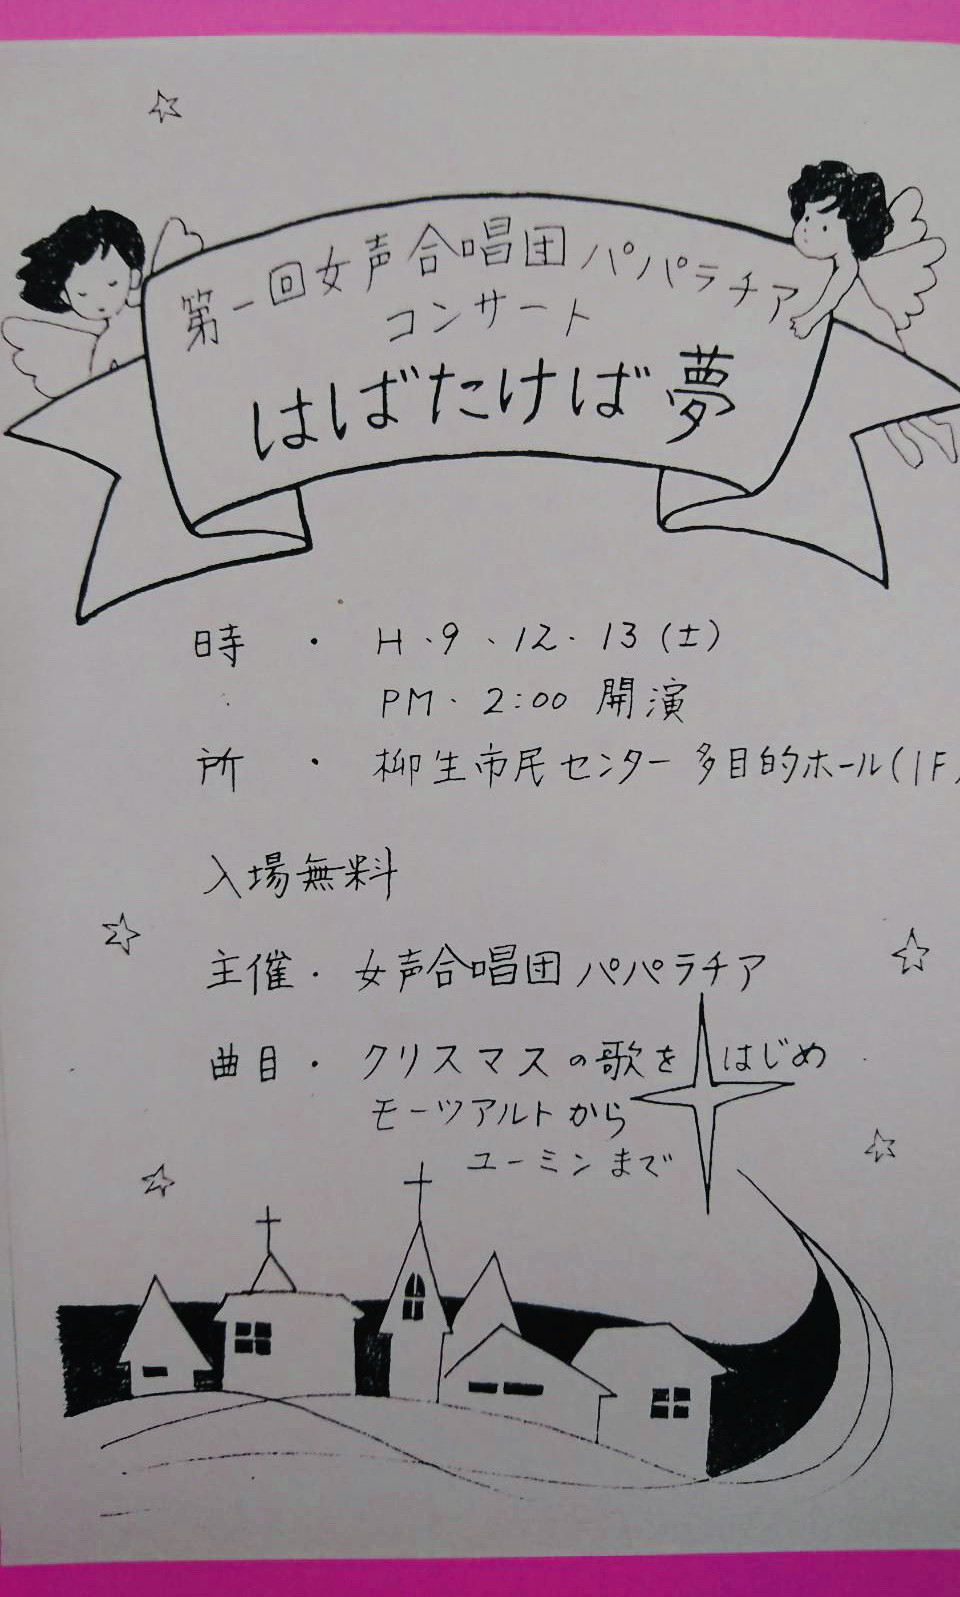 第一回女声合唱団パパラチア
コンサート
はばたけば夢
時 ・ H.9.12.13(土)
PM.2:00 開演
所 ・ 柳生市民センター 多目的ホール(1F)
入場無料
主催・女声合唱団パパラチア
曲目・クリスマスの歌をはじめ
モーツアルトから
ユーミンまで